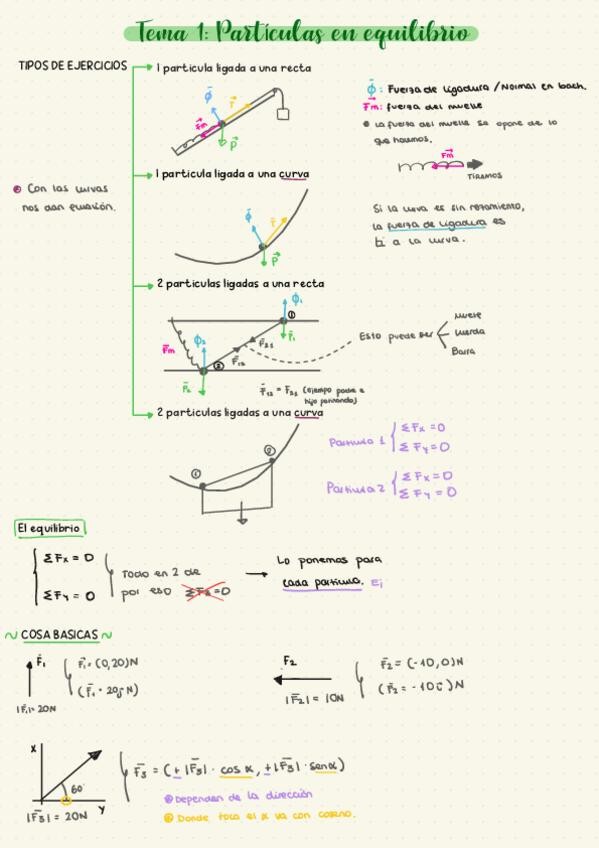 Tema 1: Partículas en equilibrio
TIPOS DE EJERCICIOS
1 particula ligada a una recta
Φ : Fuerza de ligadura / Normal en bach.
Fm: fuerza del muelle
La fuerza del muelle se opone de lo
que hacemos.
Φ
T
Fm
P
Fm
TIRAMOS
1 particula ligada a una curva
Con las curvas
nos dan ecuación.
Φ
T
P
Si la curva es sin rozamiento,
la fuerza de ligadura es
a la curva.
2 particulas ligadas a una recta
Φ1
1
Fm
Φ2
F21
P1
F12
2
P2
Esto puede ser
Muelle
Cuerda
Barra
F12 = F21 (ejemplo padre e
hijo patinando)
2 particulas ligadas a una curva
1
2
Particula 1
ΣFx = 0
ΣFy = 0
Particula 2
ΣFx = 0
ΣFy = 0
El equilibrio
ΣFx = 0
ΣFy = 0
Todo en 2 de
por eso ΣFz = 0
Lo ponemos para
cada particula. Ej
COSA BASICAS
F1
F1 = (0,20)N
(F1 = 20j)N
|F1| = 20N
F2
|F2| = 10N
F2 = (-10,0)N
(F2 = -10i)N
X
60°
Y
|F3| = 20N
F3 = (+|F3| · cos α, +|F3| · sen α)
Dependen de la dirección
Donde toca el α va con coseno.